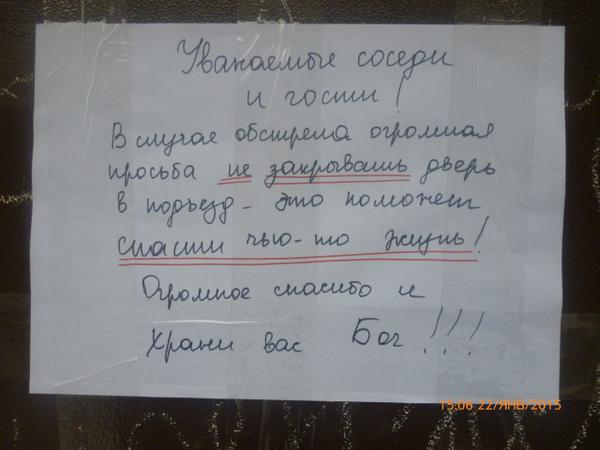 Уважаемые соседи
и гости!
В случае обстрела огромная
просьба не закрывать дверь
в подъезд - это поможет
спасти чью-то жизнь!
Огромное спасибо и
Храни вас Бог!!!
15:06 22/ЯНВ/2015